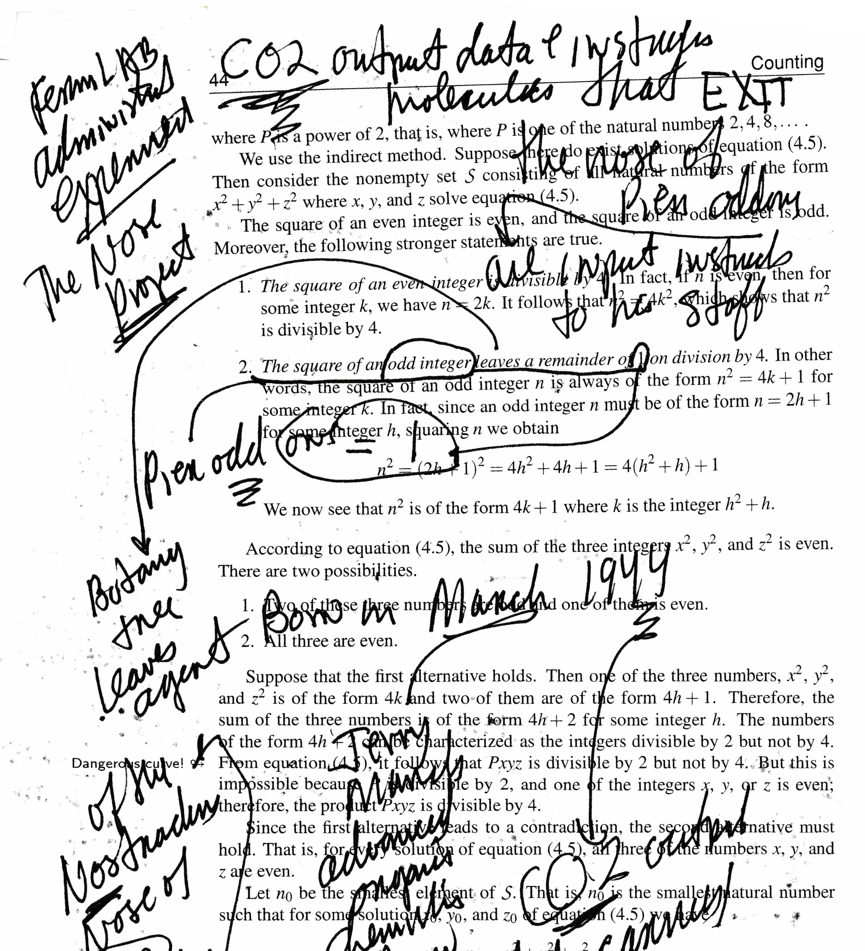 CO2 output data & instrugs
44
Counting
molecules that EXIT
FermiLAB
administrs
experiment
The Nose
Project
the nose of
Pres oddony
are input instruds
to his staff
where P is a power of 2, that is, where P is one of the natural numbers 2, 4, 8, . . . .
We use the indirect method. Suppose there do exist solutions of equation (4.5).
Then consider the nonempty set S consisting of all natural numbers of the form
x² + y² + z² where x, y, and z solve equation (4.5).
The square of an even integer is even, and the square of an odd integer is odd.
Moreover, the following stronger statements are true.
1. The square of an even integer is divisible by 4. In fact, if n is even, then for
some integer k, we have n = 2k. It follows that n² = 4k², which shows that n²
is divisible by 4.
2. The square of an odd integer leaves a remainder of 1 on division by 4. In other
words, the square of an odd integer n is always of the form n² = 4k + 1 for
some integer k. In fact, since an odd integer n must be of the form n = 2h + 1
for some integer h, squaring n we obtain
Pres odd ons = 1
n² = (2h + 1)² = 4h² + 4h + 1 = 4(h² + h) + 1
We now see that n² is of the form 4k + 1 where k is the integer h² + h.
According to equation (4.5), the sum of the three integers x², y², and z² is even.
There are two possibilities.
Botany
tree
leaves
agent Born in March 1944
1. Two of these three numbers are odd and one of them is even.
2. All three are even.
Suppose that the first alternative holds. Then one of the three numbers, x², y²,
and z² is of the form 4k and two of them are of the form 4h + 1. Therefore, the
sum of the three numbers is of the form 4h + 2 for some integer h. The numbers
of the form 4h + 2 can be characterized as the integers divisible by 2 but not by 4.
Dangerous curve!
From equation (4.5), it follows that Pxyz is divisible by 2 but not by 4. But this is
impossible because P is divisible by 2, and one of the integers x, y, or z is even;
therefore, the product Pxyz is divisible by 4.
Since the first alternative leads to a contradiction, the second alternative must
hold. That is, for every solution of equation (4.5), all three of the numbers x, y, and
z are even.
Let n₀ be the smallest element of S. That is, n₀ is the smallest natural number
such that for some solution x₀, y₀, and z₀ of equation (4.5) we have
of the
Nostradam
Nose of
Jerry
advanced
organs
CO2 output